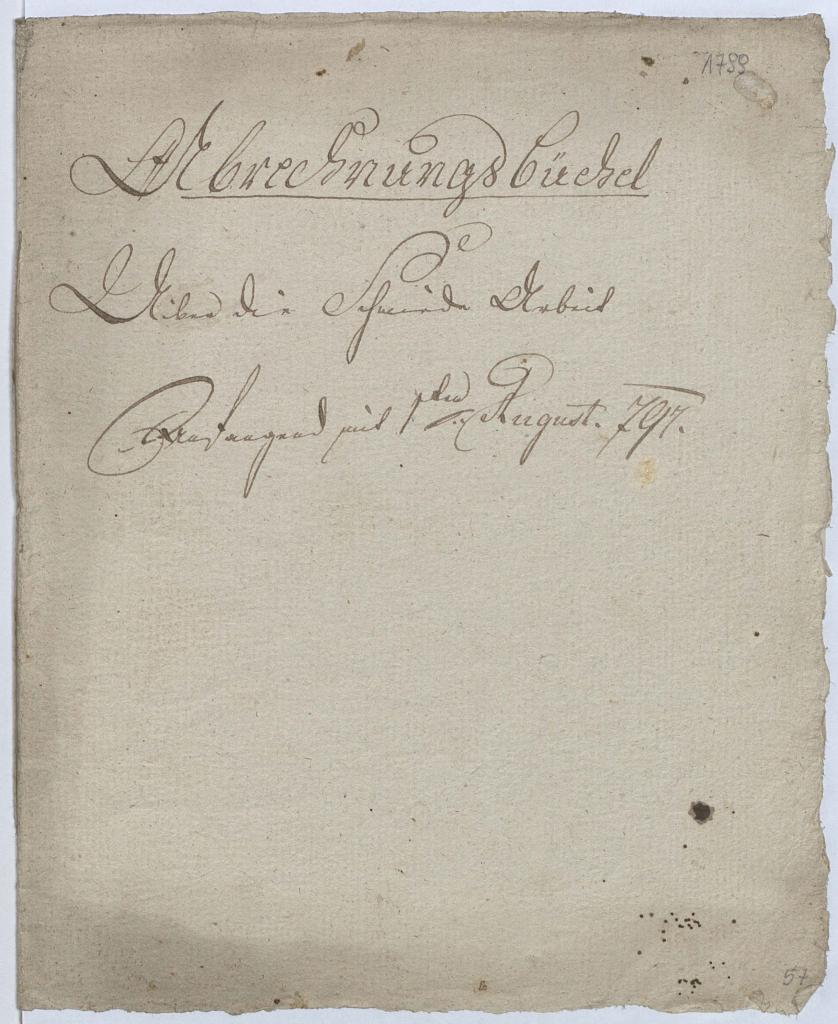 1799
Abrechnungsbüchel
Uiber die Schmiede Arbeit
Anfangend mit 1ten August. 797.
57